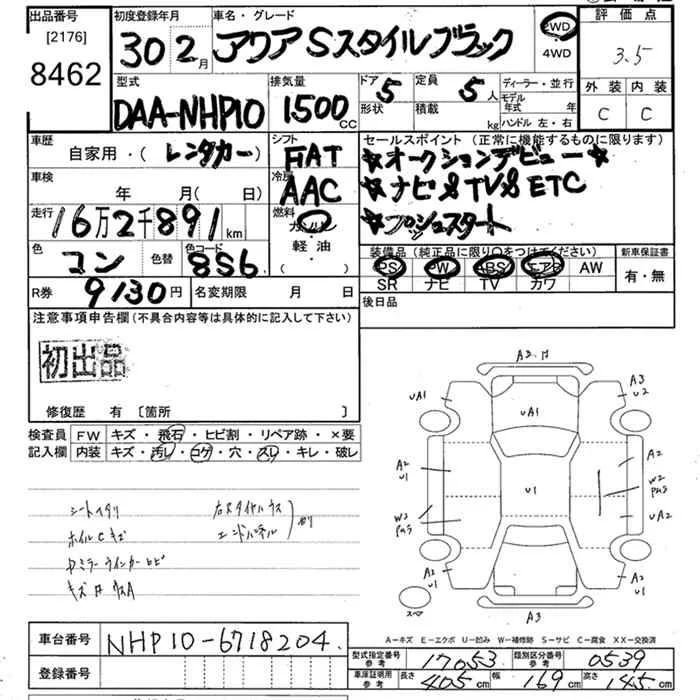 出品番号 初度登録年月 車名・グレード 評価点
[2176] 8462
30 2月 アクア Sスタイルブラック 2WD ・ 4WD 3.5
外装 内装
C C
型式 排気量 ドア 形状 定員 積載 ディーラー・並行
DAA-NHP10 1500cc 5 5人 kg モデル年式 年
ハンドル 左・右
車歴 シフト セールスポイント (正常に機能するものに限ります)
自家用・(レンタカー) FAT ☆オークションデビュー☆
車検 冷房 ☆ナビ&TV&ETC
年 月( 日) AAC ☆プッシュスタート
走行 燃料
16万2千891km ガソリン・軽油・( )
色 色替 色コード 装備品 (純正品に限り○をつけてください) 新車保証書
コン 8S6 PS PW ABS エアB AW 有・無
SR ナビ TV カワ
R券 9130円 名変期限 月 日 後日品
注意事項申告欄(不具合内容等は具体的に記入して下さい)
初出品
修復歴 有 [箇所 ]
検査員記入欄 FW キズ・飛石・ヒビ割・リペア跡・×要
内装 キズ・汚レ・コゲ・穴・スレ・キレ・破レ
シートヘタリ
ホイルCキズ
キズ
A3
UA1
A3
U2
UA1
A2
U1
U1
A2
W2
PなS
W3
PなS
UA2
A2
U1
A2
U1
スペア
A3
A-キズ E-エクボ U-凹み W-補修跡 S-サビ C-腐食 XX-交換済
車台番号 NHP10-6718204.
型式指定番号 参考 17053 類別区分番号 参考 0539
登録番号 車庫証明用 参考 長さ 405cm 幅 169cm 高さ 145cm